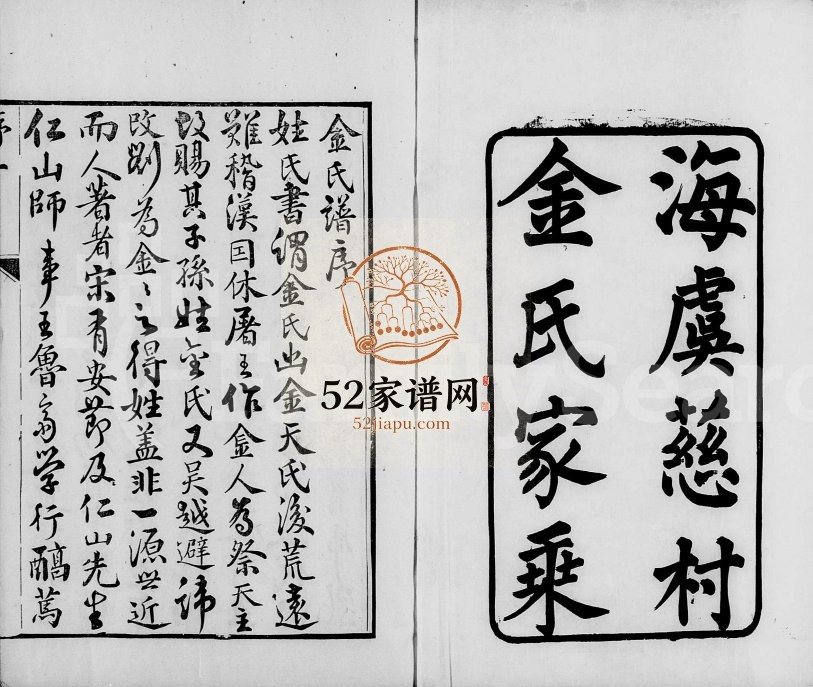 海虞慈村
金氏家乘
金氏譜序
姓氏書謂金氏出金天氏後荒遠
難稽漢因休屠王作金人為祭天主
故賜其子孫姓金氏又吳越避諱
改劉為金〻之得姓盖非一源世近
而人著者宋有安節及仁山先生
仁山師事王魯齋学行醇篤
序一
52家谱网
52jiapu.com